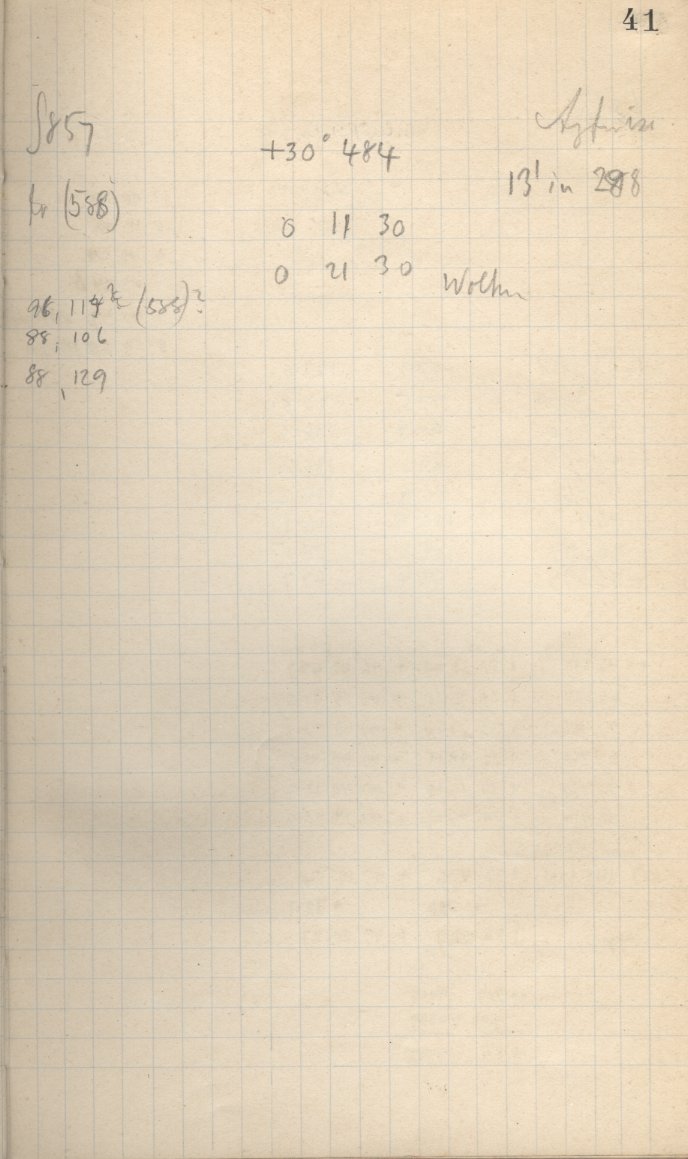 41
∫857
+30° 484
13' in
(588)
0 11 30
0 21 30
Wolken
96, (588)?
88, 106
88, 129